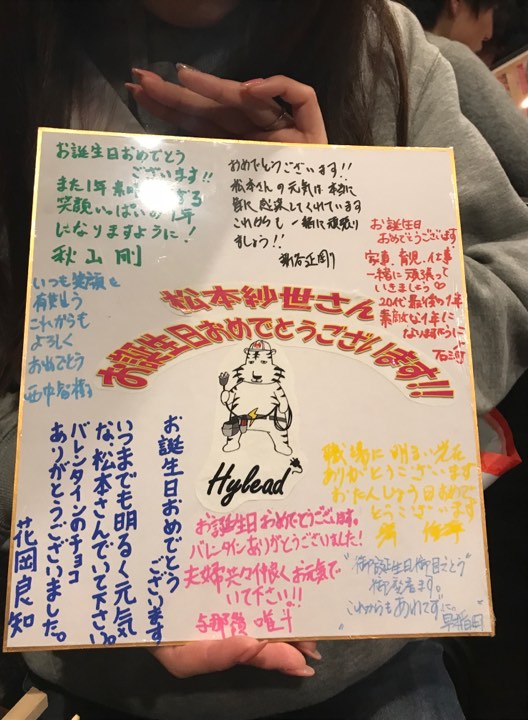 お誕生日おめでとう
ございます!!
また1年素
する
笑顔いっぱいの1年
になりますように!
秋山 剛
おめでとうございます!!
松本さんの元気は本当に
皆に
してくれています
これからも一緒に頑張り
ましょう!!
お誕生日
おめでとうございます
家事、育児、仕事
一緒に頑張って
いきましょう♡
20代最後の1年
素敵な1年に
なりますように
いつも笑顔
有難う
これからも
よろしく
おめでとう
松本紗世さん
お誕生日おめでとうございます!!
Hylead
お誕生日おめでとう
ございます
いつまでも明るく元気
な、松本さんでいて下さい。
バレンタインのチョコ
ありがとうございました。
花岡良知
お誕生日おめでとうございます。
バレンタインありがとうございました!
夫婦共々仲良くお元気で
いて下さい!!
与那嶺 唯斗
職場に明るい光を
ありがとうございます
おたんじょう日おめで
とうございます
"御誕生日御目でとう
御座居ます。
これからも